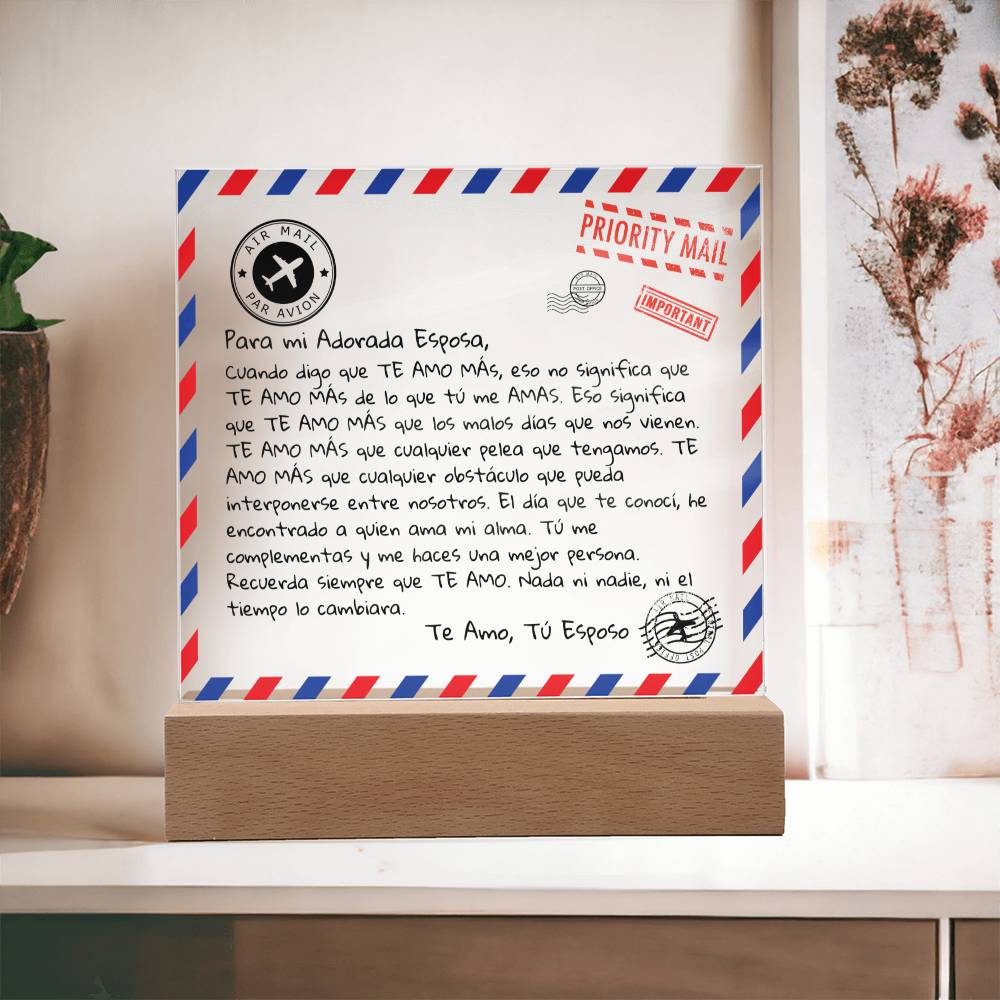 AIR MAIL
PAR AVION
PRIORITY MAIL
AIR MAIL
POST OFFICE
IMPORTANT
Para mi Adorada Esposa,
Cuando digo que TE AMO MÁS, eso no significa que
TE AMO MÁS de lo que tú me AMAS. Eso significa
que TE AMO MÁS que los malos días que nos vienen.
TE AMO MÁS que cualquier pelea que tengamos. TE
AMO MÁS que cualquier obstáculo que pueda
interponerse entre nosotros. El día que te conocí, he
encontrado a quien ama mi alma. Tú me
complementas y me haces una mejor persona.
Recuerda siempre que TE AMO. Nada ni nadie, ni el
tiempo lo cambiara.
Te Amo, Tú Esposo
AIR MAIL
POST OFFICE